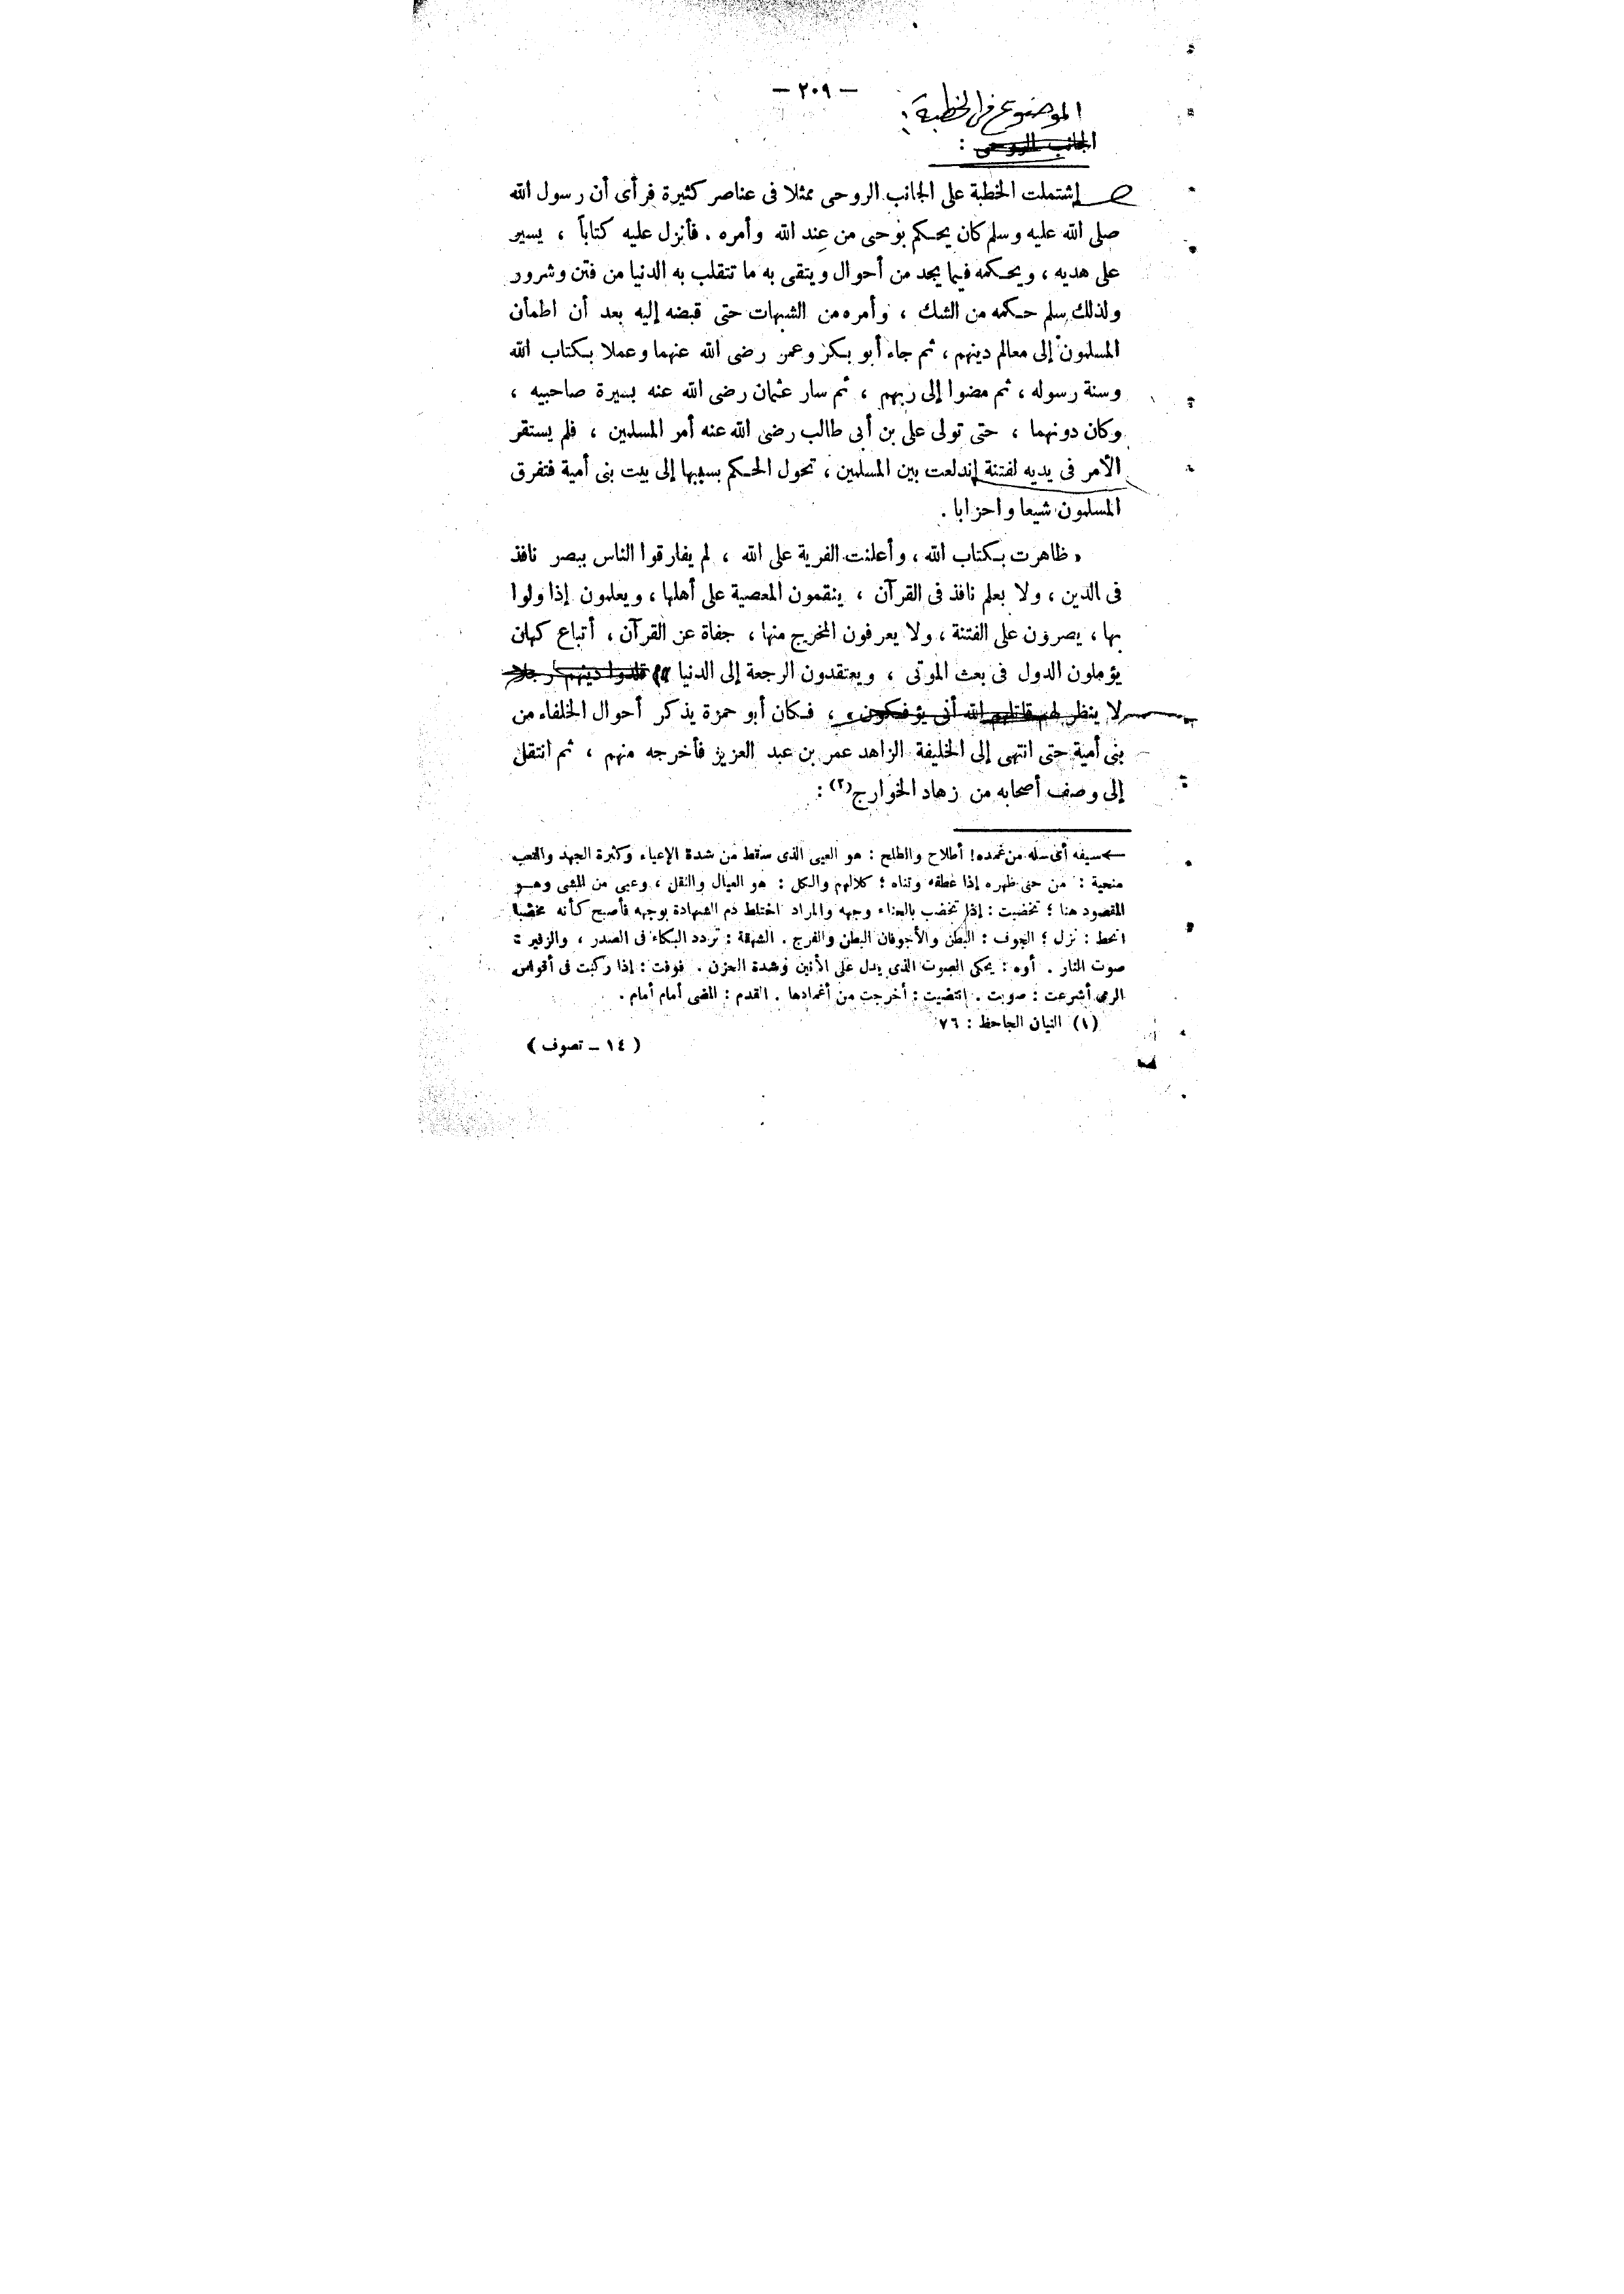 — ٢٠٩ —
الموضوع في الخطبة :
الجانب الروحى :
إشتملت الخطبة على الجانب الروحى ممثلا فى عناصر كثيرة فرأى أن رسول الله
صلى الله عليه وسلم كان يحكم بوحى من عند الله وأمره . فأنزل عليه كتاباً ، يسير
على هديه ، ويحكمه فيما يجد من أحوال ويتقى به ما تتقلب به الدنيا من فتن وشرور
ولذلك سلم حكمه من الشك ، وأمره من الشبهات حتى قبضه إليه بعد أن اطمأن
المسلمون إلى معالم دينهم ، ثم جاء أبو بكر وعمر رضى الله عنهما وعملا بكتاب الله
وسنة رسوله ، ثم مضوا إلى ربهم ، ثم سار عثمان رضى الله عنه بسيرة صاحبيه ،
وكان دونهما ، حتى تولى على بن أبى طالب رضى الله عنه أمر المسلمين ، فلم يستقر
الأمر فى يديه لفتنة إندلعت بين المسلمين ، تحول الحكم بسببها إلى بيت بنى أمية فتفرق
المسلمون شيعا واحزابا .
« ظاهرت بكتاب الله ، وأعلنت الفرية على الله ، لم يفارقوا الناس ببصر نافذ
فى الدين ، ولا بعلم نافذ فى القرآن ، ينقمون المعصية على أهلها ، ويعلمون إذا ولوا
بها ، يصرون على الفتنة ، ولا يعرفون المخرج منها ، جفاة عن القرآن ، أتباع كهان
يؤملون الدول فى بعث الموتى ، ويعتقدون الرجعة إلى الدنيا قلدوا دينهم رجلا
لا ينظر لهم قاتلهم الله أنى يؤفكون » ، فكان أبو حمزة يذكر أحوال الخلفاء من
بنى أمية حتى انتهى إلى الخليفة الزاهد عمر بن عبد العزيز فأخرجه منهم ، ثم انتقل
إلى وصف أصحابه من زهاد الخوارج (٢) :
سيفه أى سله من غمده ! أطلاح والطلح : هو العيى الذى سقط من شدة الإعياء وكثرة الجهد والتعب
منحية : من حنى ظهره إذا عطفه وثناه ؛ كلالهم والكل : هو العيال والثقل ، وعيى من المشى وهو
المقصود هنا ؛ تخضبت : إذا تخضب بالحناء وجهه والمراد اختلط دم الشهادة بوجهه فأصبح كأنه مخضبا
انحط : نزل ؛ الجوف : البطن والأجوفان البطن والفرج . الشهقة : تردد البكاء فى الصدر ، والزفير :
صوت النار . أوه : يحكى الصوت الذى يدل على الأنين وشدة الحزن . فوقت : إذا ركبت فى أقواس
الرمى أشرعت : صوبت . انتضيت : أخرجت من أغمادها . القدم : المضى أمام أمام .
(١) البيان الجاحظ : ٧٦
( ١٤ ـ تصوف )